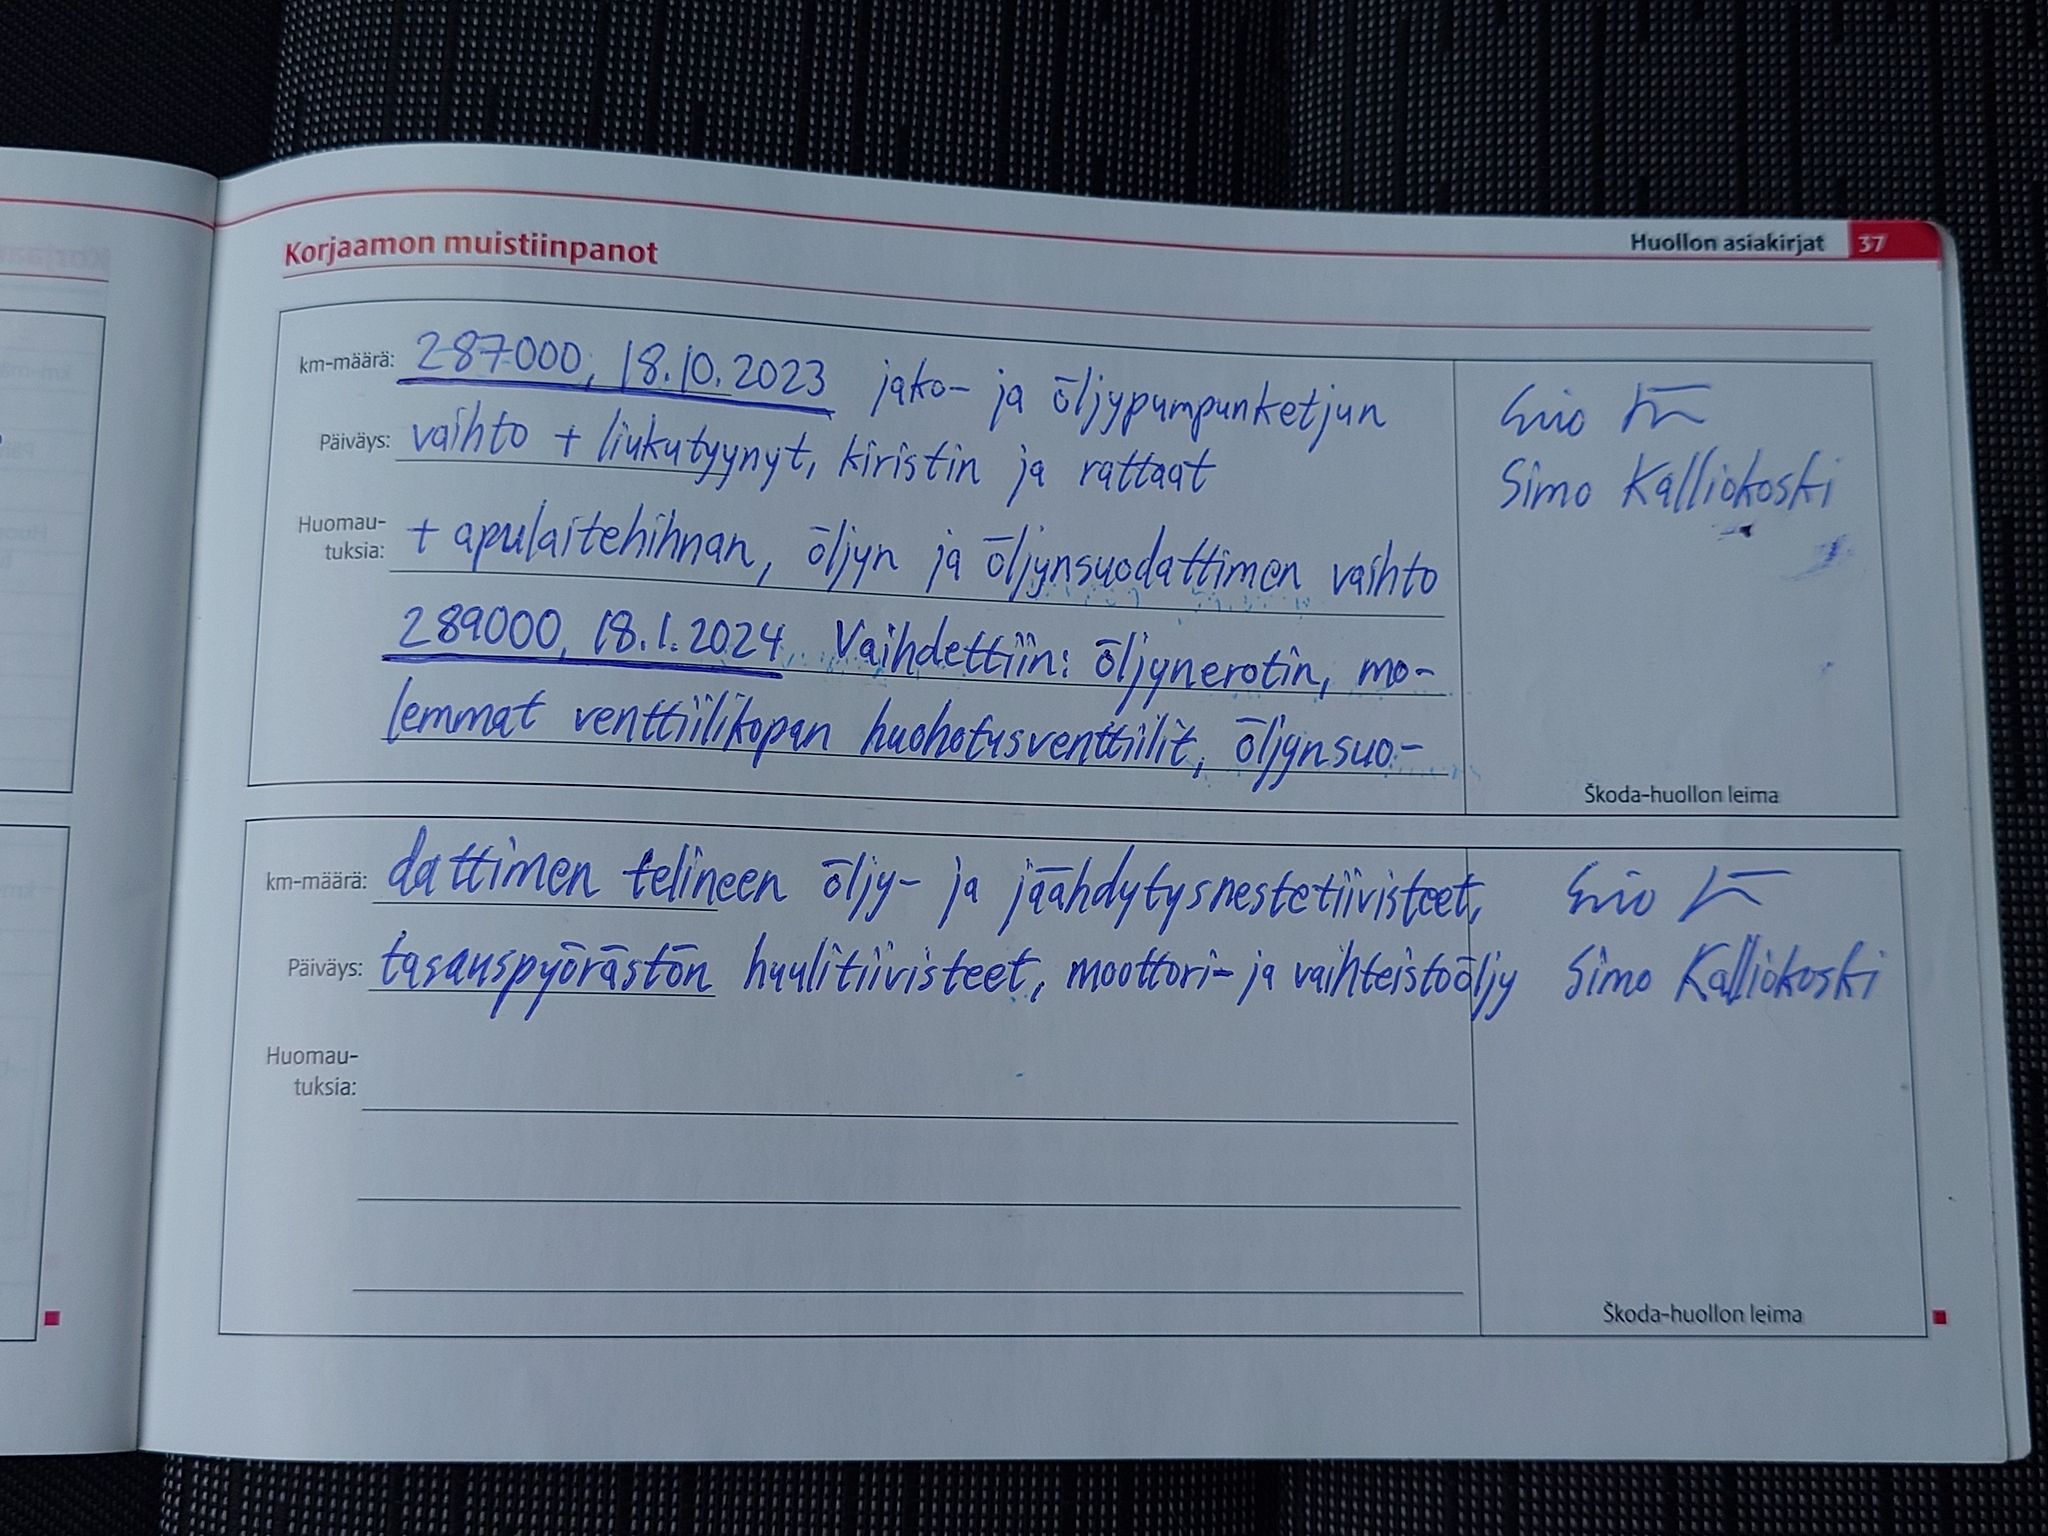 Korjaamon muistiinpanot
Huollon asiakirjat 37
km-määrä: 287000, 18.10.2023 jako- ja öljypumpunketjun
Päiväys: vaihto + liukutyynyt, kiristin ja rattaat
Huomau-
tuksia: + apulaitehihnan, öljyn ja öljynsuodattimen vaihto
289000, 18.1.2024 Vaihdettiin: öljynerotin, mo-
lemmat venttiilikopan huohotusventtiilit, öljynsuo-
Simo Kalliokoski
Škoda-huollon leima
km-määrä: dattimen telineen öljy- ja jäähdytysnestetiivisteet,
Päiväys: tasauspyörästön huulitiivisteet, moottori- ja vaihteistoöljy
Huomau-
tuksia:
Simo Kalliokoski
Škoda-huollon leima